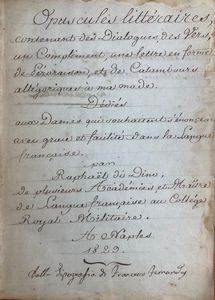 Opuscules littéraires,
contenant des Dialogues, des Vers,
un Complément, une lettre en forme
de Péroraison, et de Calembours
allégoriques à ma mode.
Dédiés
aux Dames qui voudraient s'énoncer
avec grace et facilité dans la Langue
française.
par
Raphaël de Dino,
de plusieurs Académies et Maître
de Langue française au Collège
Royal Militaire.
A Naples
1829.
Dalla Tipografia di Francesco